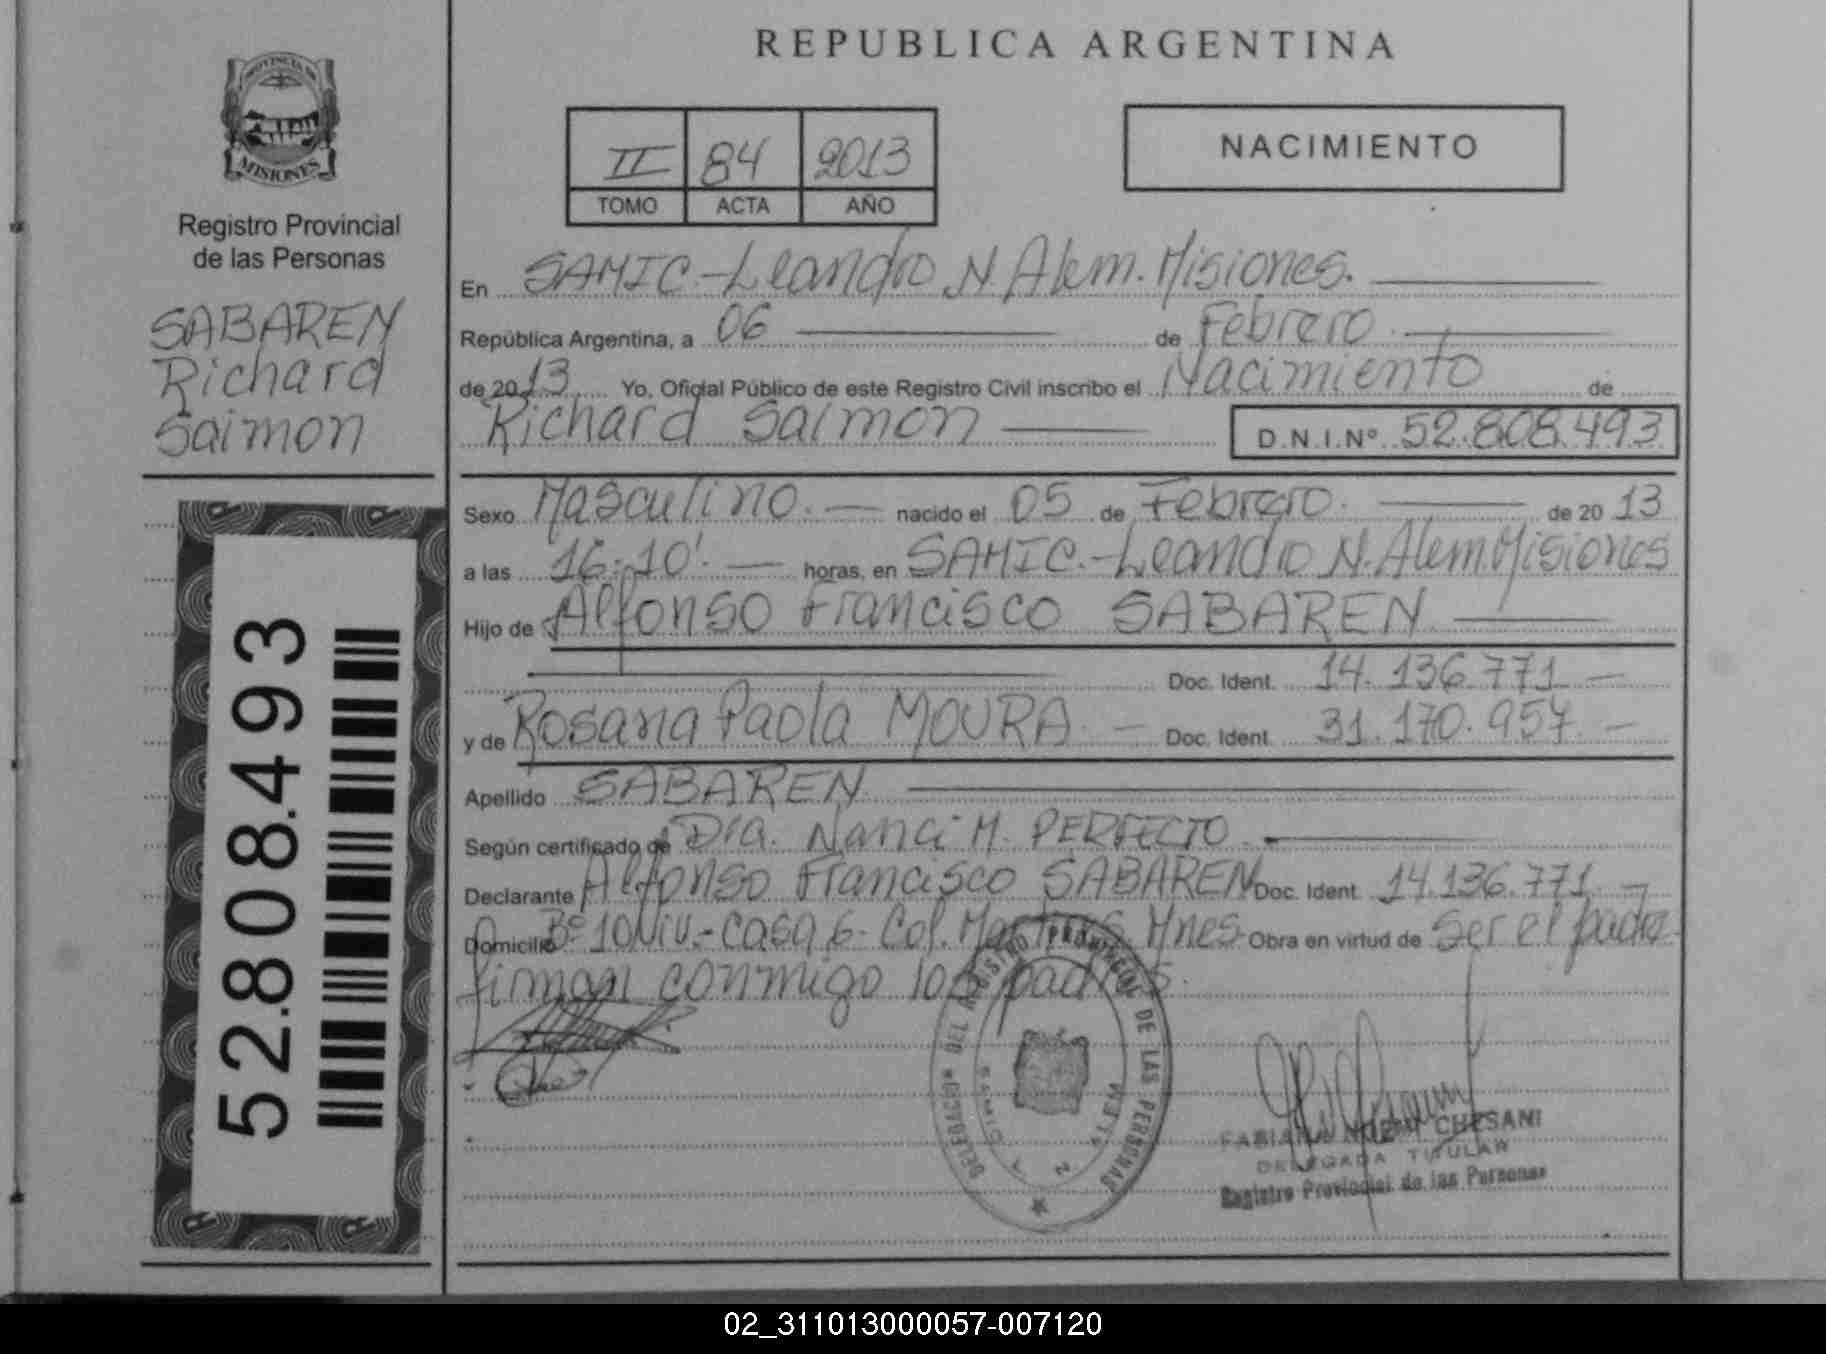 REPUBLICA ARGENTINA
PROVINCIA DE
MISIONES
Registro Provincial
de las Personas
SABAREN
Richard
Saimon
52.808.493
II 84 2013
TOMO ACTA AÑO
NACIMIENTO
En SAMIC-Leandro N. Alem. Misiones.
República Argentina, a 06 de Febrero
de 2013 Yo, Oficial Público de este Registro Civil inscribo el Nacimiento de
Richard Saimon D.N.I.Nº 52.808.493
Sexo Masculino. nacido el 05 de Febrero. de 20 13
a las 16:10'. horas, en SAMIC.-Leandro N. Alem. Misiones
Hijo de Alfonso Francisco SABAREN
Doc. Ident. 14.136.771
y de Rosana Paola MOURA Doc. Ident. 31.170.957
Apellido SABAREN
Según certificado de Dra. Nanci M. PERFECTO
Declarante Alfonso Francisco SABAREN Doc. Ident. 14.136.771
Domicilio Bº 10 Viv.- Casa 6- Col. Martires Mnes. Obra en virtud de Ser el padre.
firman conmigo los padres.
DELEGACION DEL REGISTRO PROVINCIAL DE LAS PERSONAS
N. ALEM
FABIANA NOEMI CHESANI
DELEGADA TITULAR
Registro Provincial de las Personas
02_311013000057-007120